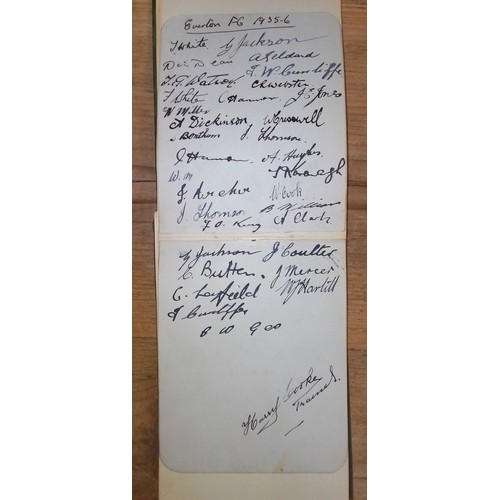 Everton FC 1935-6
T. White G Jackson
Dixie Dean A Geldard
T. G. Watson J. W. Cunliffe
T White C Hannon J. E. Jones
W Miller C K Webster
A Dickinson W Cresswell
Bentham J. Thomson
A. Hughes
W. M
J Archer W. Cook
J Thomson B Williams
F. O. King A Clark
G Jackson J Coulter
C. Britton. J Mercer
C. Leyfield W J Hartill
J Cunliffe
B W Gee
Harry Cooke
Trainer.